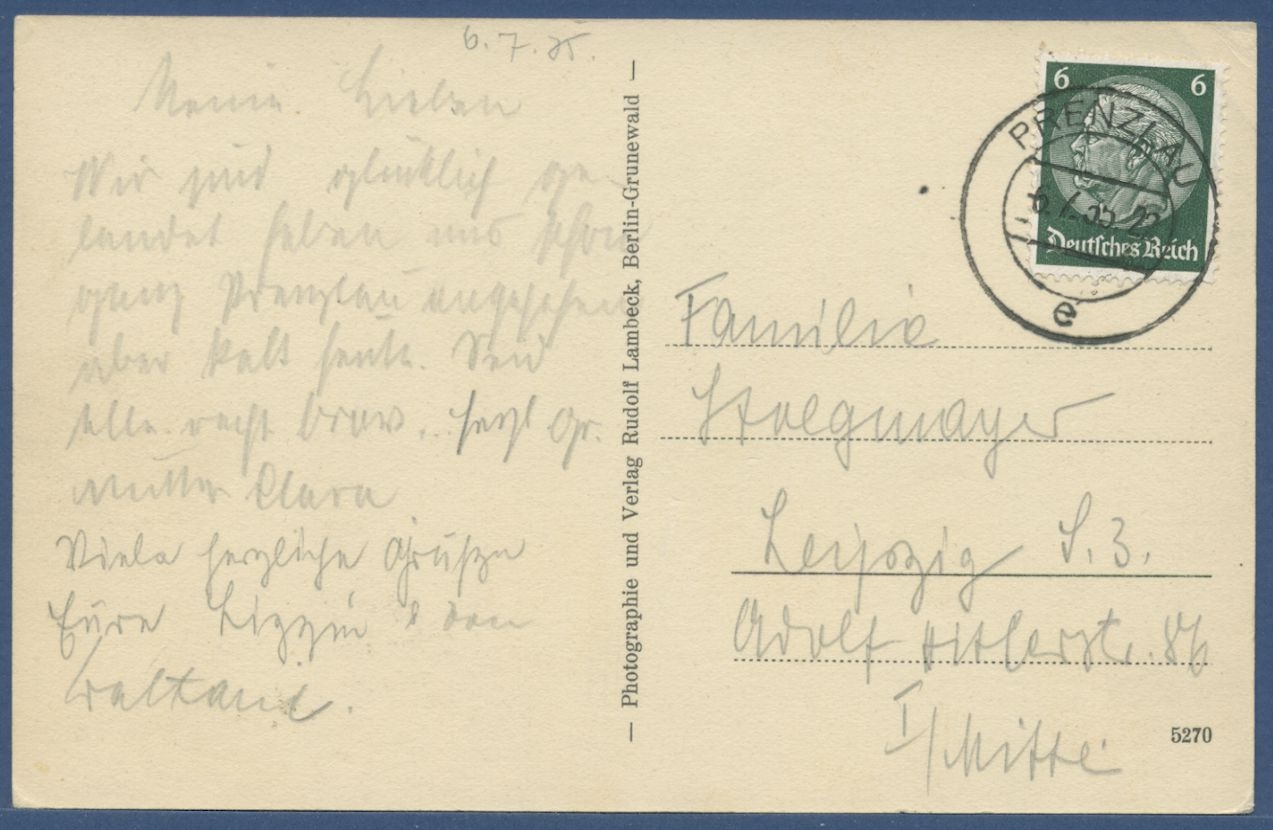 6.7.35.
Meine Lieben
Wir sind glücklich ge-
landet haben uns schon
ganz Prenzlau angesehen
aber kalt heute. Seid
alle recht brav. herzl Gr.
Mutter Clara
Viele herzliche Grüße
Eure
— Photographie und Verlag Rudolf Lambeck, Berlin-Grunewald —
6 6
Deutsches Reich
PRENZLAU
6.7.35
e
Familie
Leipzig S.3.
Adolf Hitlerstr. 86
I/Mitte
5270